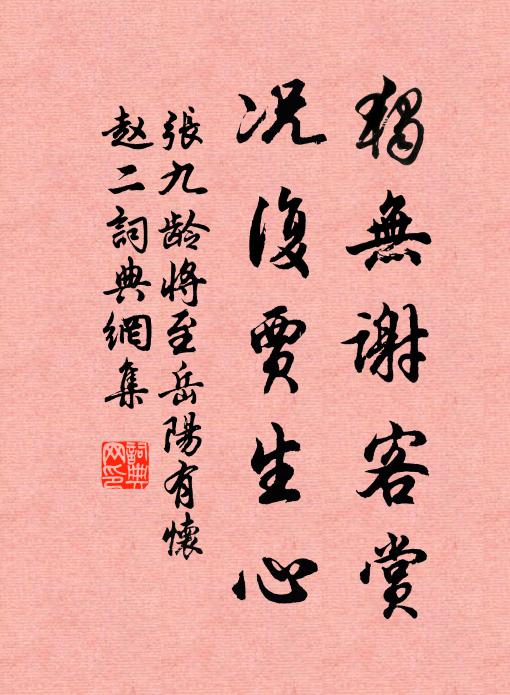 獨無謝客賞
况復賈生心
張九龄將至岳陽有懷
赵二詞典網集
詞典网印